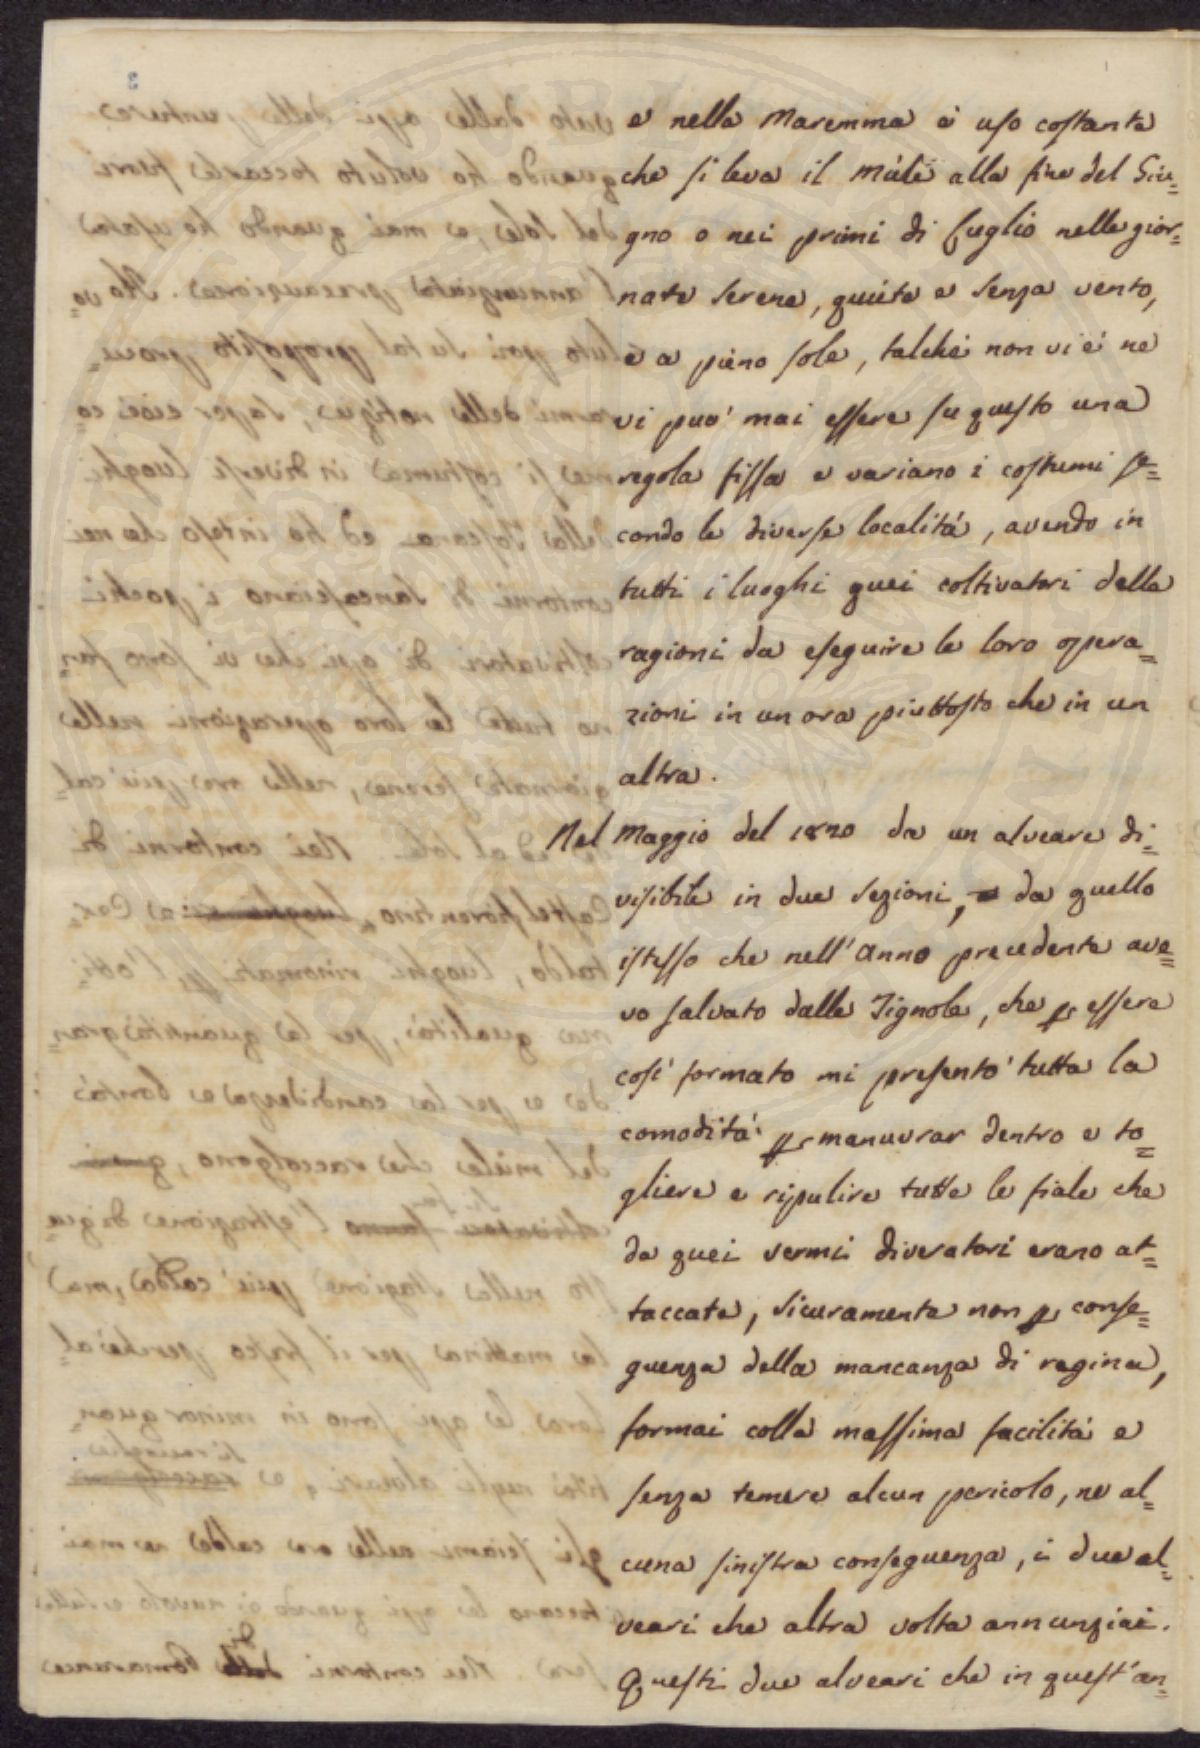 e nella Maremma è uso costante
che si leva il Miele alla fine del Giu=
gno o nei primi di Luglio nelle gior=
nate serene, quiete e senza vento,
e a pieno sole, talchè non vi è ne
vi può mai essere su questo una
regola fissa e variano i costumi se=
condo le diverse località, avendo in
tutti i luoghi quei coltivatori delle
ragioni da eseguire le loro opera=
zioni in un ora piuttosto che in un
altra.
Nel Maggio del 1820 da un alveare di=
visibile in due sezioni, da quello
istesso che nell' Anno precedente ave=
vo salvato dalle Tignole, che p essere
così formato mi presentò tutta la
comodità p manuvrar dentro e to=
gliere e ripulire tutte le fiale che
da quei vermi divoratori erano at=
taccate, sicuramente non p conse=
guenza della mancanza di regina,
formai colla massima facilità e
senza temere alcun pericolo, ne al=
cuna sinistra conseguenza, i due al=
veari che altra volta annunziai.
Questi due alveari che in quest' an=